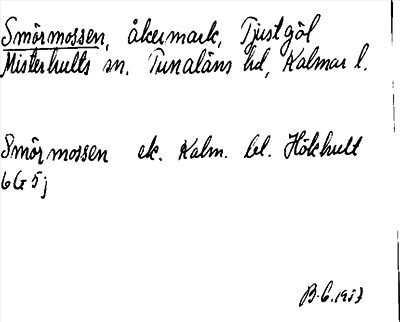 Smörmossen, åkermark, Tjustgöl
Misterhults sn. Tunaläns hd, Kalmar l.
Smörmossen ek. Kalm. bl. Hökhult
6G5j
B.G.